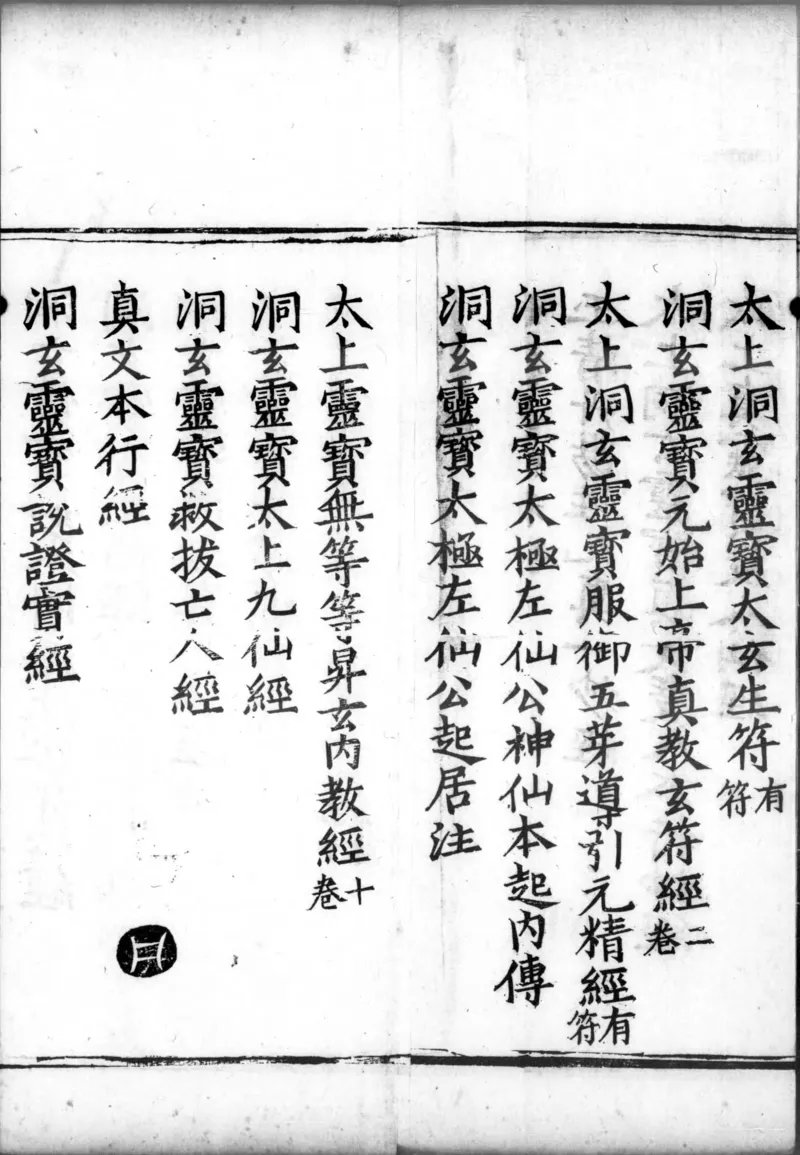 太上洞玄靈寶太玄生符有符
洞玄靈寶元始上帝真教玄符經二卷
太上洞玄靈寶服御五芽導引元精經有符
洞玄靈寶太極左仙公神仙本起內傳
洞玄靈寶太極左仙公起居注
太上靈寶無等等昇玄內教經十卷
洞玄靈寶太上九仙經
洞玄靈寶救拔亡人經
真文本行經
洞玄靈寶說證實經